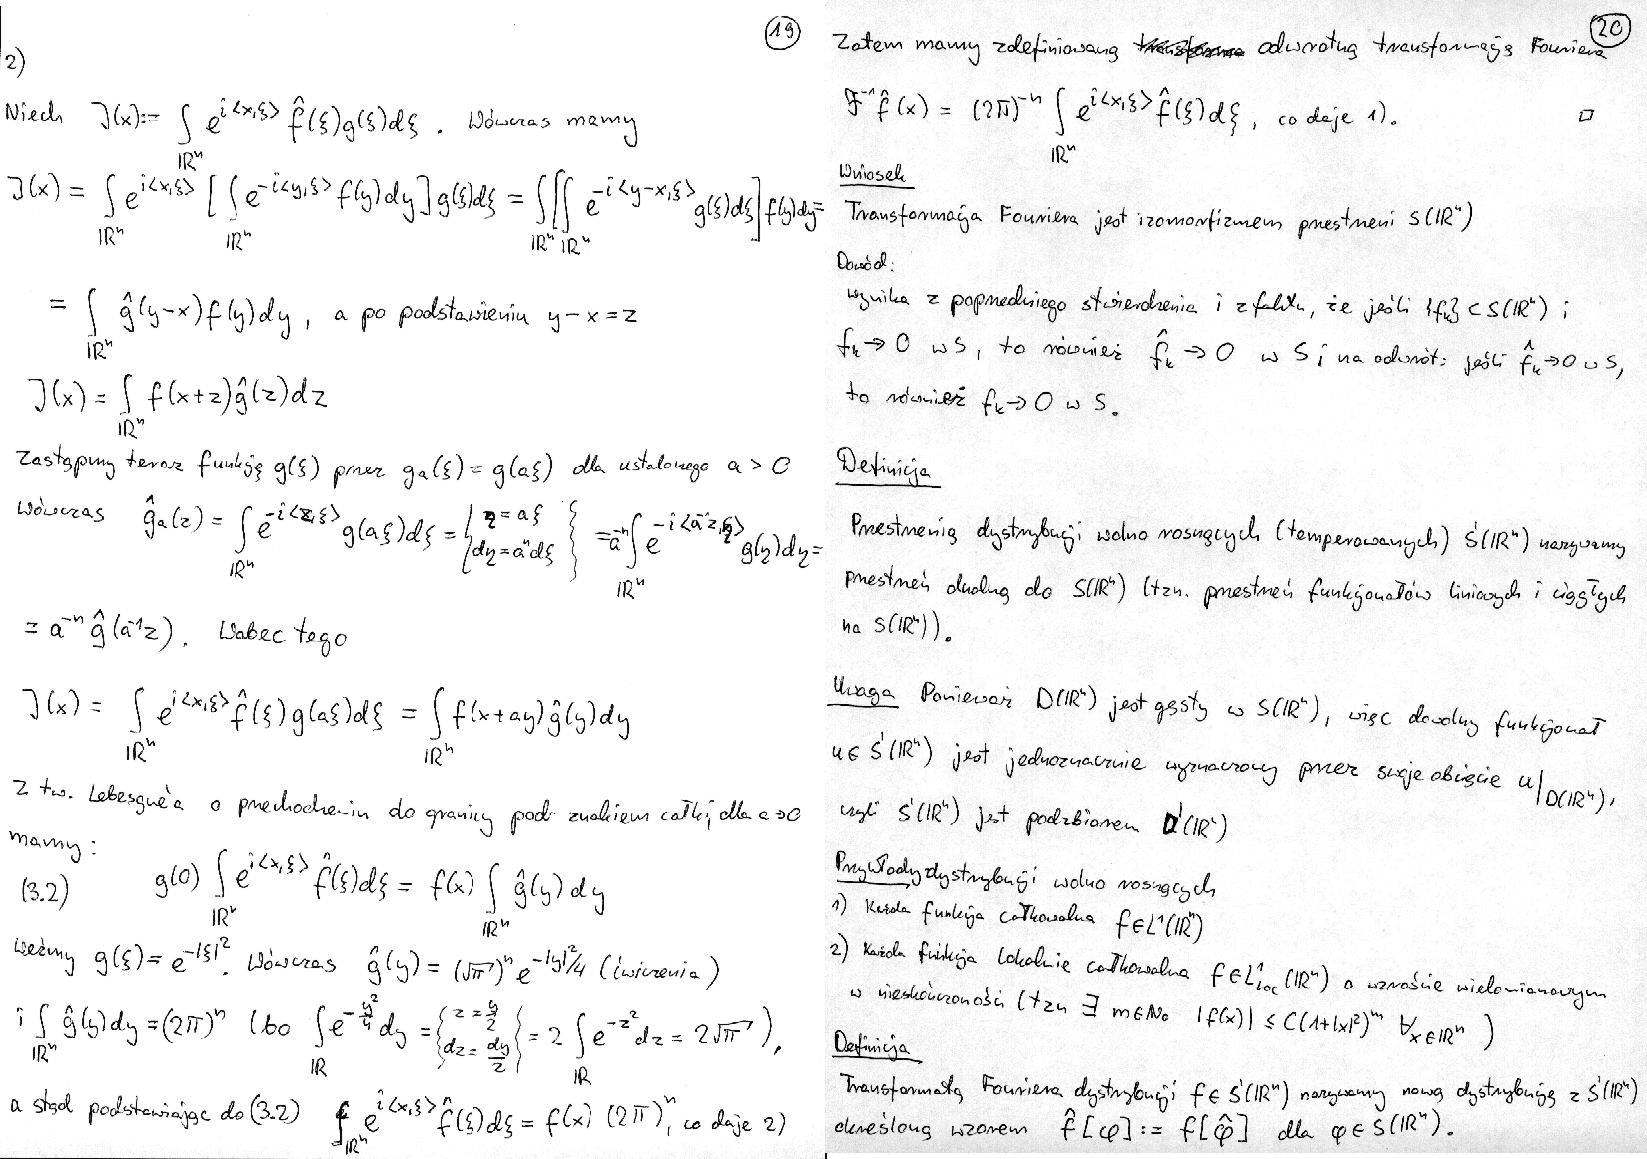 19
2)
Niech J(x):= ∫_{ℝⁿ} e^{i<x,ξ>} f̂(ξ)g(ξ)dξ. Wówczas mamy
J(x) = ∫_{ℝⁿ} e^{i<x,ξ>} [∫_{ℝⁿ} e^{-i<y,ξ>} f(y)dy] g(ξ)dξ = ∫_{ℝⁿ}[∫_{ℝⁿ} e^{-i<y-x,ξ>} g(ξ)dξ] f(y)dy =
= ∫_{ℝⁿ} ĝ(y-x)f(y)dy, a po podstawieniu y-x=z
J(x) = ∫_{ℝⁿ} f(x+z)ĝ(z)dz
Zastąpmy teraz funkcję g(ξ) przez g_a(ξ) = g(aξ) dla ustalonego a > 0
Wówczas ĝ_a(z) = ∫_{ℝⁿ} e^{-i<z,ξ>} g(aξ)dξ = {η = aξ, dη = aⁿdξ} = a⁻ⁿ ∫_{ℝⁿ} e^{-i<a⁻¹z,η>} g(η)dη =
= a⁻ⁿ ĝ(a⁻¹z). Wobec tego
J(x) = ∫_{ℝⁿ} e^{i<x,ξ>} f̂(ξ)g(aξ)dξ = ∫_{ℝⁿ} f(x+ay)ĝ(y)dy
Z tw. Lebesgue'a o przechodzeniu do granicy pod znakiem całki, dla a→0
mamy:
(3.2) g(0) ∫_{ℝⁿ} e^{i<x,ξ>} f̂(ξ)dξ = f(x) ∫_{ℝⁿ} ĝ(y)dy
Weźmy g(ξ) = e^{-|ξ|²}. Wówczas ĝ(y) = (√π)ⁿ e^{-|y|²/4} (ćwiczenia)
i ∫_{ℝⁿ} ĝ(y)dy = (2π)ⁿ (bo ∫_ℝ e^{-y²/4} dy = {z = y/2, dz = dy/2} = 2 ∫_ℝ e^{-z²} dz = 2√π),
a stąd podstawiając do (3.2) ∫_{ℝⁿ} e^{i<x,ξ>} f̂(ξ)dξ = f(x) (2π)ⁿ, co daje 2)
20
Zatem mamy zdefiniowaną odwrotną transformację Fouriera
F⁻¹f̂(x) = (2π)⁻ⁿ ∫_{ℝⁿ} e^{i<x,ξ>} f̂(ξ)dξ, co daje 1). □
Wniosek
Transformacja Fouriera jest izomorfizmem przestrzeni S(ℝⁿ)
Dowód:
wynika z poprzedniego stwierdzenia i z faktu, że jeśli {f_k} ⊂ S(ℝⁿ) i
f_k → 0 w S, to również f̂_k → 0 w S i na odwrót: jeśli f̂_k → 0 w S,
to również f_k → 0 w S.
Definicja
Przestrzenią dystrybucji wolno rosnących (temperowanych) S'(ℝⁿ) nazywamy
przestrzeń dualną do S(ℝⁿ) (tzn. przestrzeń funkcjonałów liniowych i ciągłych
na S(ℝⁿ)).
Uwaga Ponieważ D(ℝⁿ) jest gęsty w S(ℝⁿ), więc dowolny funkcjonał
u ∈ S'(ℝⁿ) jest jednoznacznie wyznaczony przez swoje obcięcie u|_{D(ℝⁿ)},
czyli S'(ℝⁿ) jest podzbiorem D'(ℝⁿ)
Przykłady dystrybucji wolno rosnących
1) Każda funkcja całkowalna f ∈ L¹(ℝⁿ)
2) Każda funkcja lokalnie całkowalna f ∈ L¹_{loc}(ℝⁿ) o wzroście wielomianowym
w nieskończoności (tzn ∃ m∈ℕ₀ |f(x)| ≤ C(1+|x|²)ᵐ ∀_{x∈ℝⁿ})
Definicja
Transformatą Fouriera dystrybucji f ∈ S'(ℝⁿ) nazywamy nową dystrybucję z S'(ℝⁿ)
określoną wzorem f̂[φ] := f[φ̂] dla φ ∈ S(ℝⁿ).